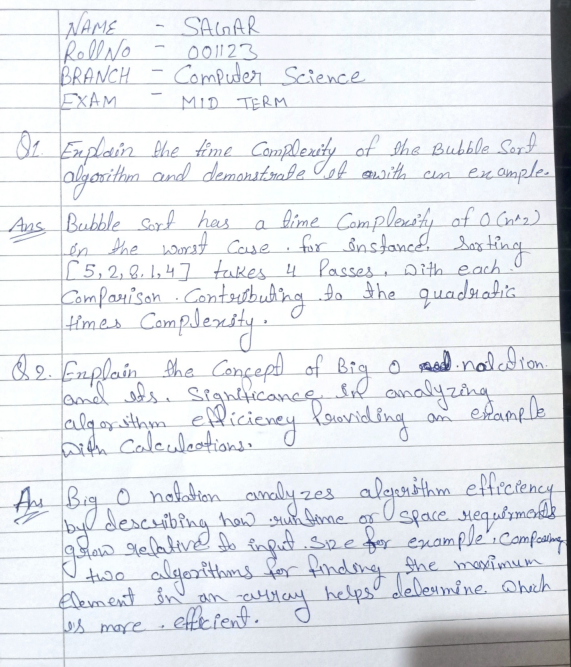 NAME - SAGAR
Roll No - 001123
BRANCH - Computer Science
EXAM - MID TERM
Q1. Explain the time Complexity of the Bubble Sort
algorithm and demonstrate it with an example.
Ans Bubble sort has a time Complexity of O(n^2)
in the worst Case. for instance, Sorting
[5,2,8,1,4] takes 4 Passes, with each
Comparison. Contributing to the quadratic
times Complexity.
Q2. Explain the Concept of Big O notation
and its. Significance in analyzing
algorithm efficiency Providing an example
with Calculations.
Ans Big O notation analyzes algorithm efficiency
by describing how runtime or space requirments
grow relative to input. Size for example, Comparing
two algorithms for finding the maximum
Element in an array helps determine which
is more. efficient.